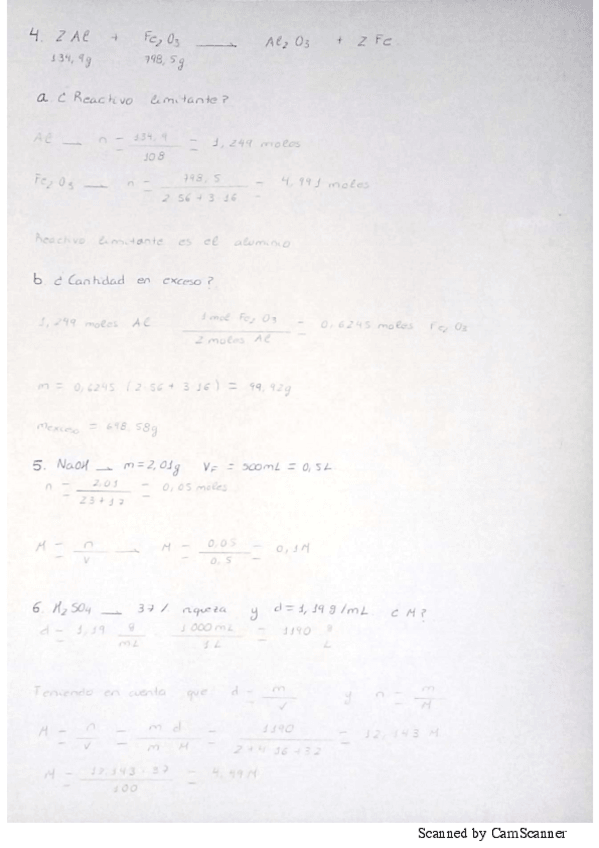 4. 2 Al + Fe₂O₃ → Al₂O₃ + 2 Fe
134,9g 798,5g
a. ¿Reactivo limitante?
Al → n = 134,9 / 108 = 1,249 moles
Fe₂O₃ → n = 798,5 / 2·56 + 3·16 = 4,991 moles
Reactivo limitante es el aluminio
b. ¿Cantidad en exceso?
1,249 moles Al 1 mol Fe₂O₃ / 2 moles Al = 0,6245 moles Fe₂O₃
m = 0,6245 (2·56 + 3·16) = 99,92g
m exceso = 698,58g
5. NaOH → m = 2,01g VF = 500mL = 0,5L
n = 2,01 / 23+17 = 0,05 moles
M = n / v → M = 0,05 / 0,5 = 0,1M
6. H₂SO₄ → 37% riqueza y d = 1,19 g/mL ¿M?
d = 1,19 g / mL 1000 mL / 1L = 1190 g / L
Teniendo en cuenta que d = m / v y n = m / M
M = n / v = m d / m M = 1190 / 2+4·16+32 = 12,143 M
M = 12,143 · 37 / 100 = 4,49M
Scanned by CamScanner